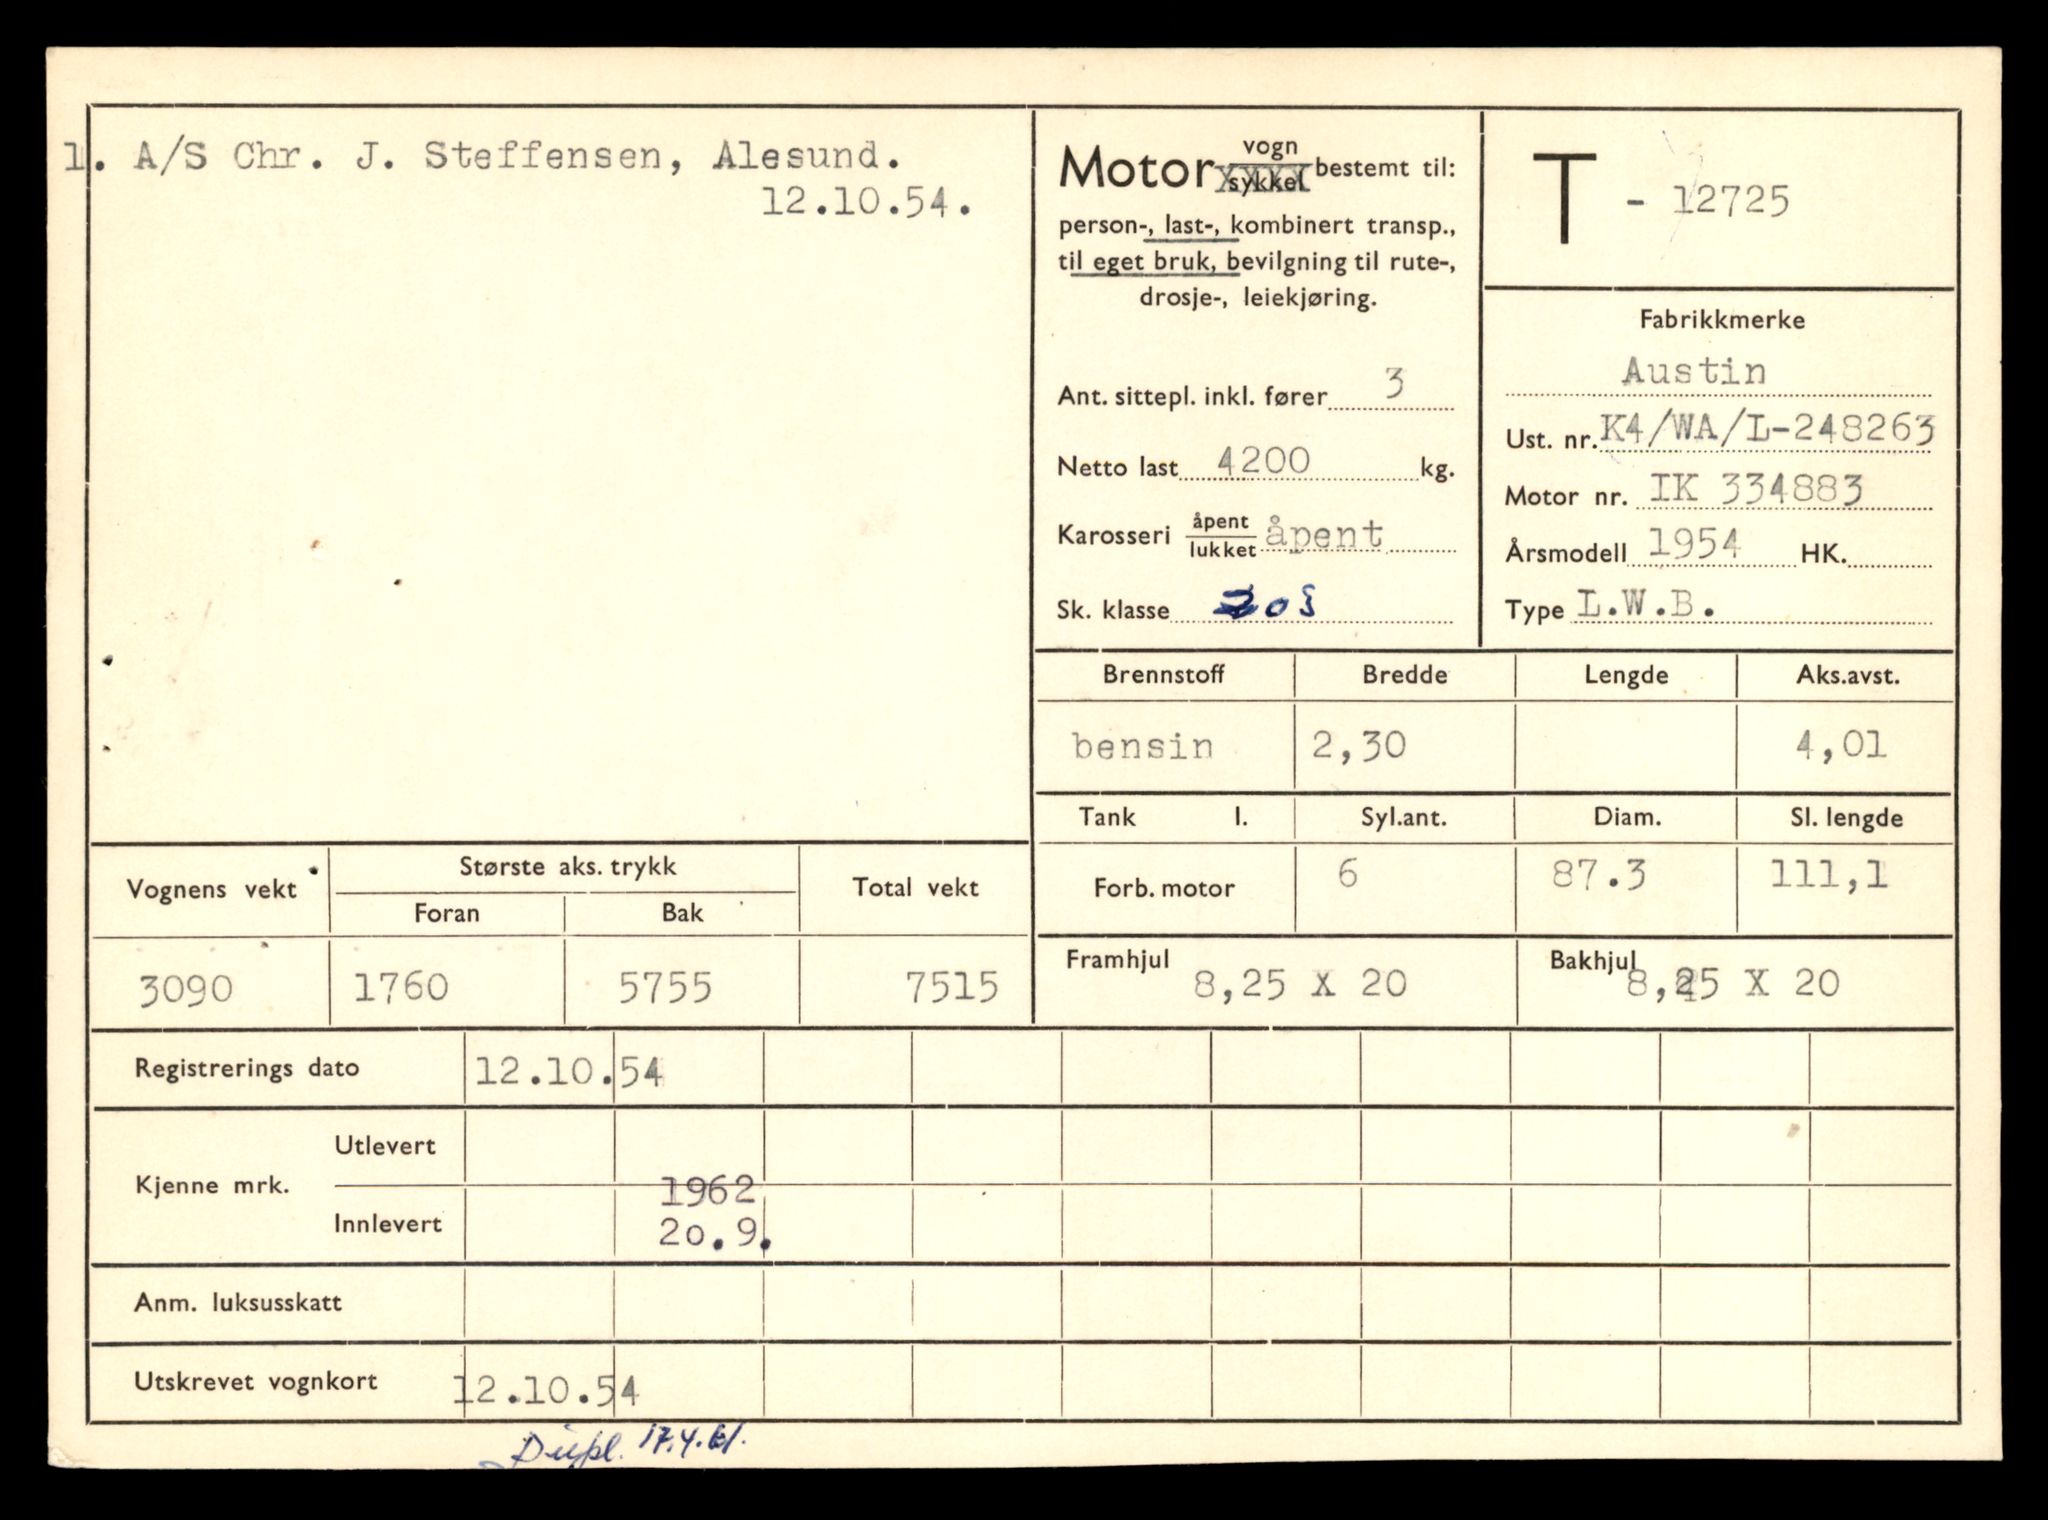 1. A/S Chr. J. Steffensen, Alesund.
12.10.54.
Motor vogn bestemt til:
sykkel
person-, last-, kombinert transp.,
til eget bruk, bevilgning til rute-,
drosje-, leiekjøring.
Ant. sittepl. inkl. fører 3
Netto last 4200 kg.
Karosseri åpent/lukket åpent
Sk. klasse
T - 12725
Fabrikkmerke
Austin
Ust. nr. K4/WA/L-248263
Motor nr. IK 334883
Årsmodell 1954 HK.
Type L.W.B.
Brennstoff Bredde Lengde Aks.avst.
bensin 2,30 4,01
Tank l. Syl.ant. Diam. Sl. lengde
Forb. motor 6 87.3 111,1
Framhjul 8,25 X 20 Bakhjul 8,25 X 20
Vognens vekt Største aks. trykk Total vekt
Foran Bak
3090 1760 5755 7515
Registrerings dato 12.10.54
Kjenne mrk. Utlevert
1962
Innlevert 20.9.
Anm. luksusskatt
Utskrevet vognkort 12.10.54
Dupl. 17.4.61.